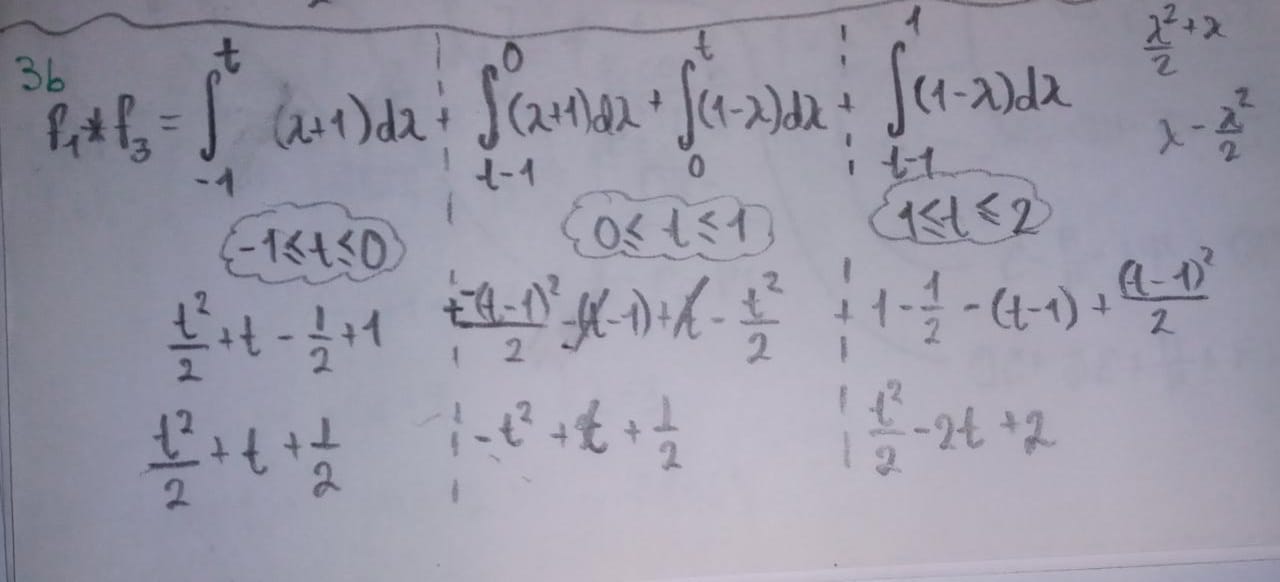 3b
f₁*f₃ = ∫₋₁ᵗ (λ+1)dλ + ∫ₜ₋₁⁰ (λ+1)dλ + ∫₀ᵗ (1-λ)dλ + ∫ₜ₋₁¹ (1-λ)dλ
λ²/2 + λ
λ - λ²/2
-1≤t≤0 0≤t≤1 1≤t≤2
t²/2 + t - 1/2 + 1 + -(t-1)²/2 - (t-1) + t - t²/2 + 1 - 1/2 - (t-1) + (t-1)²/2
t²/2 + t + 1/2 - t² + t + 1/2 t²/2 - 2t + 2